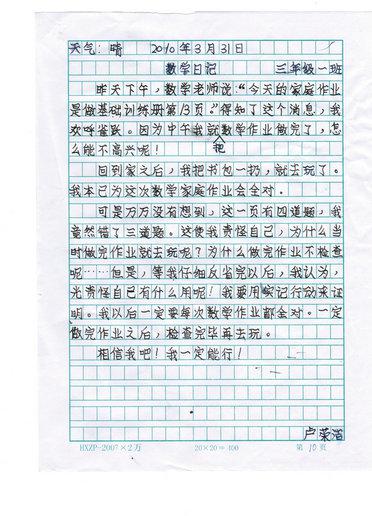 天气：晴 2010年3月31日
数学日记 三年级一班
昨天下午，数学老师说“今天的家庭作业
是做基础训练册第13页。”得知了这个消息，我
欢呼雀跃。因为中午我就数学作业做完了，怎
把
么能不高兴呢！
回到家之后，我把书包一扔，就去玩了。
我本已为这次数学家庭作业会全对。
可是万万没有想到，这一页有四道题，我
竟然错了三道题。这使我责怪自己，为什么当
时做完作业就去玩呢？为什么做完作业不检查
呢……但是，等我仔细反省完以后，我认为，
光责怪自己有什么用呢！我要用实记行动来证
明。我以后一定要每次数学作业都全对。一定
做完作业之后，检查完毕再去玩。
相信我吧！我一定能行！
卢荣
HXZP-2007×2万 20×20=400 第10页